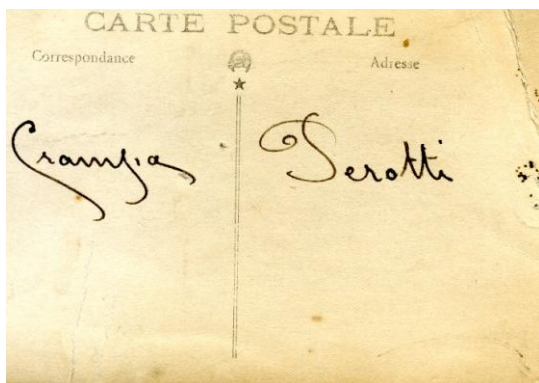 CARTE POSTALE
Correspondance Adresse
Grampa Perotti